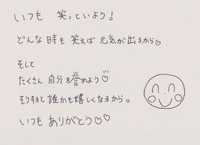 いつも 笑っていよう!
どんな時も 笑えば 元気が出るから♡
そして
たくさん 自分を誉めよう♡
そうすると 誰かも 嬉しくなるから。
いつも ありがとう♡♡